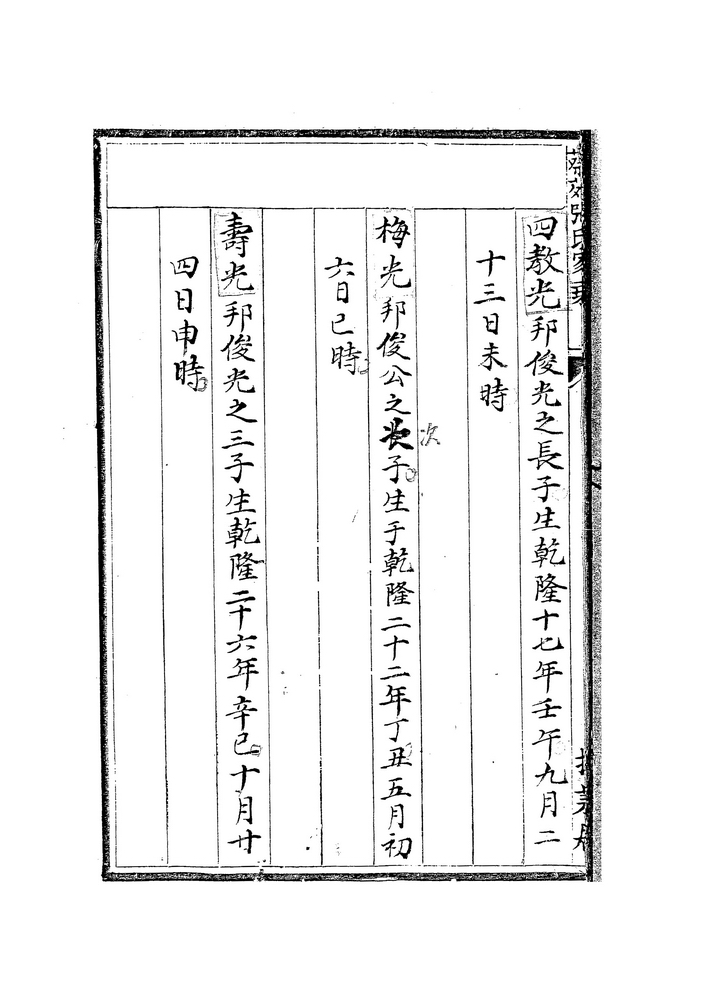 四教光邦俊光之長子生乾隆十七年壬午九月二
十三日未時
梅光邦俊公之次子生于乾隆二十二年丁丑五月初
次
六日巳時
壽光邦俊光之三子生乾隆二十六年辛巳十月廿
四日申時